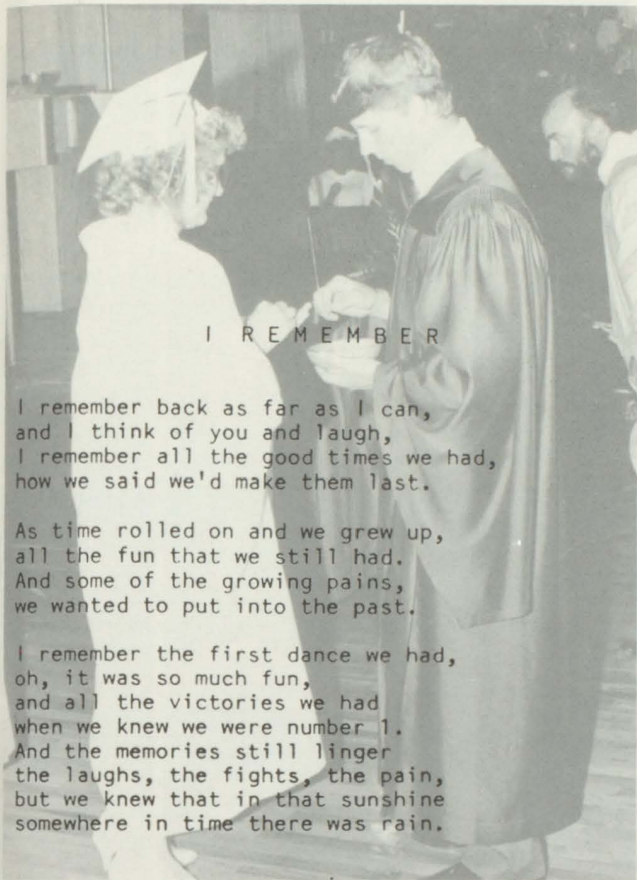 I REMEMBER
I remember back as far as I can,
and I think of you and laugh,
I remember all the good times we had,
how we said we'd make them last.
As time rolled on and we grew up,
all the fun that we still had.
And some of the growing pains,
we wanted to put into the past.
I remember the first dance we had,
oh, it was so much fun,
and all the victories we had
when we knew we were number 1.
And the memories still linger
the laughs, the fights, the pain,
but we knew that in that sunshine
somewhere in time there was rain.